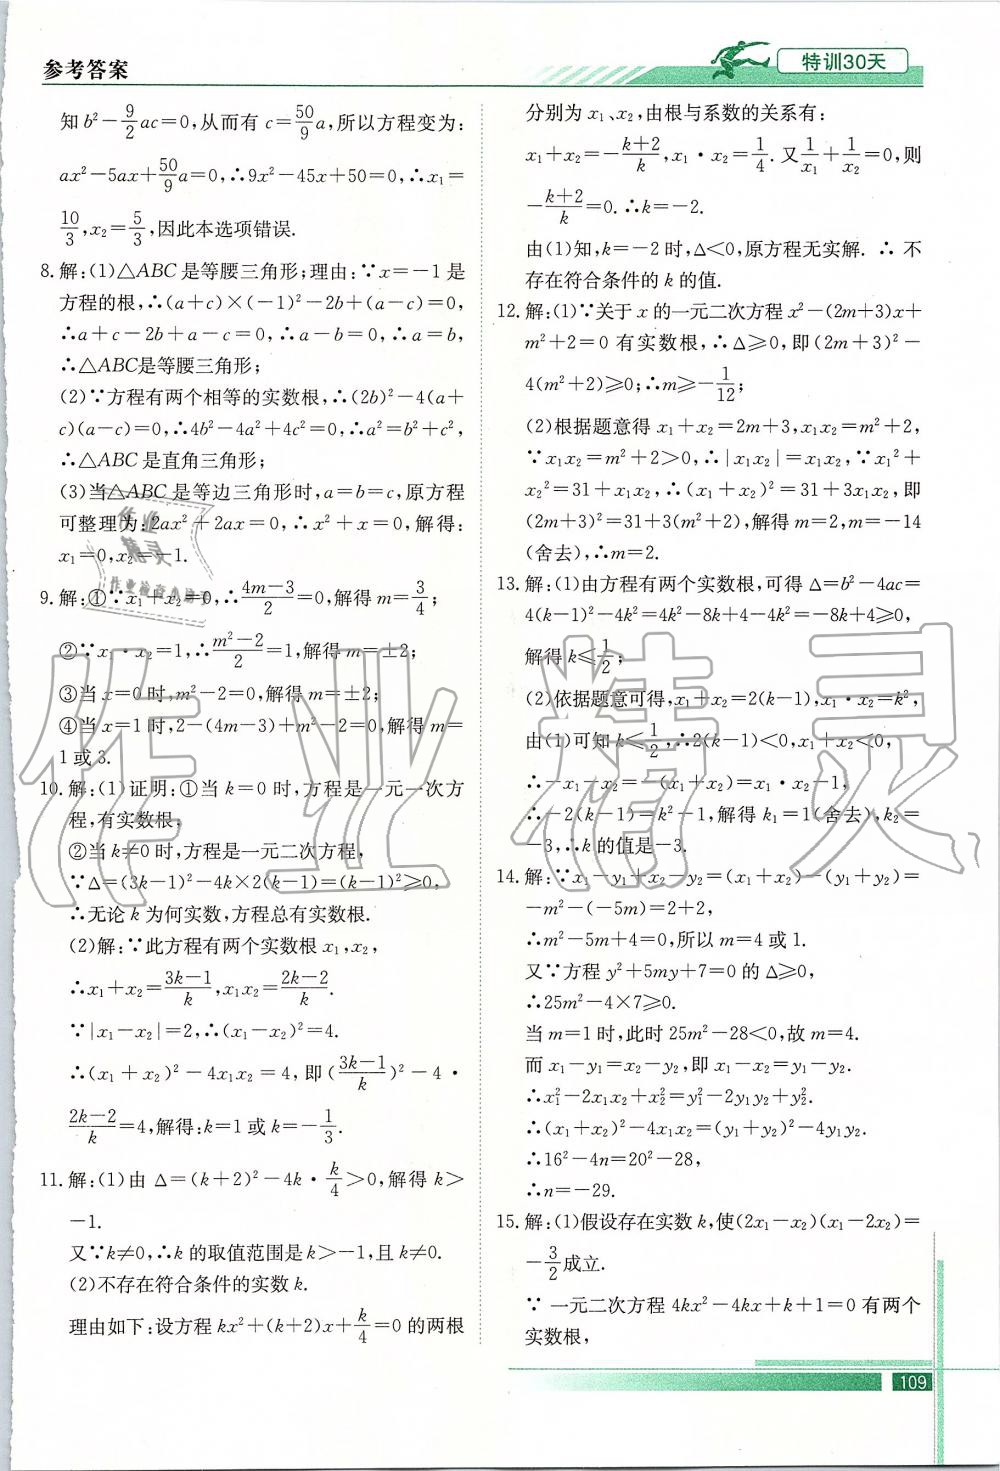 参考答案
特训30天
知 b²-9/2ac=0,从而有 c=50/9a,所以方程变为:
ax²-5ax+50/9a=0,∴9x²-45x+50=0,∴x₁=
10/3,x₂=5/3,因此本选项错误.
8. 解:(1)△ABC 是等腰三角形;理由:∵x=-1 是
方程的根,∴(a+c)×(-1)²-2b+(a-c)=0,
∴a+c-2b+a-c=0,∴a-b=0,∴a=b,
∴△ABC是等腰三角形;
(2)∵方程有两个相等的实数根,∴(2b)²-4(a+
c)(a-c)=0,∴4b²-4a²+4c²=0,∴a²=b²+c²,
∴△ABC 是直角三角形;
(3)当△ABC 是等边三角形时,a=b=c,原方程
可整理为:2ax²+2ax=0,∴x²+x=0,解得:
x₁=0,x₂=-1.
9. 解:①∵x₁+x₂=0,∴(4m-3)/2=0,解得 m=3/4;
②∵x₁·x₂=1,∴(m²-2)/2=1,解得 m=±2;
③当 x=0 时,m²-2=0,解得 m=±2;
④当 x=1 时,2-(4m-3)+m²-2=0,解得 m=
1 或 3.
10. 解:(1)证明:①当 k=0 时,方程是一元一次方
程,有实数根,
②当k≠0 时,方程是一元二次方程,
∵Δ=(3k-1)²-4k×2(k-1)=(k-1)²≥0,
∴无论 k 为何实数,方程总有实数根.
(2)解:∵此方程有两个实数根 x₁,x₂,
∴x₁+x₂=(3k-1)/k,x₁x₂=(2k-2)/k.
∵|x₁-x₂|=2,∴(x₁-x₂)²=4.
∴(x₁+x₂)²-4x₁x₂=4,即((3k-1)/k)²-4·
(2k-2)/k=4,解得:k=1 或 k=-1/3.
11. 解:(1)由 Δ=(k+2)²-4k·k/4>0,解得 k>
-1.
又∵k≠0,∴k 的取值范围是 k>-1,且 k≠0.
(2)不存在符合条件的实数 k.
理由如下:设方程 kx²+(k+2)x+k/4=0 的两根
分别为 x₁、x₂,由根与系数的关系有:
x₁+x₂=-(k+2)/k,x₁·x₂=1/4.又1/x₁+1/x₂=0,则
-(k+2)/k=0.∴k=-2.
由(1)知,k=-2 时,Δ<0,原方程无实解.∴不
存在符合条件的 k 的值.
12. 解:(1)∵关于 x 的一元二次方程 x²-(2m+3)x+
m²+2=0 有实数根,∴Δ≥0,即(2m+3)²-
4(m²+2)≥0;∴m≥-1/12;
(2)根据题意得 x₁+x₂=2m+3,x₁x₂=m²+2,
∵x₁x₂=m²+2>0,∴|x₁x₂|=x₁x₂,∵x₁²+
x₂²=31+x₁x₂,∴(x₁+x₂)²=31+3x₁x₂,即
(2m+3)²=31+3(m²+2),解得 m=2,m=-14
(舍去),∴m=2.
13. 解:(1)由方程有两个实数根,可得 Δ=b²-4ac=
4(k-1)²-4k²=4k²-8k+4-4k²=-8k+4≥0,
解得 k≤1/2;
(2)依据题意可得,x₁+x₂=2(k-1),x₁·x₂=k²,
由(1)可知 k≤1/2,∴2(k-1)<0,x₁+x₂<0,
∴-x₁-x₂=-(x₁+x₂)=x₁·x₂-1,
∴-2(k-1)=k²-1,解得 k₁=1(舍去),k₂=
-3,∴k 的值是-3.
14. 解:∵x₁-y₁+x₂-y₂=(x₁+x₂)-(y₁+y₂)=
-m²-(-5m)=2+2,
∴m²-5m+4=0,所以 m=4 或1.
又∵方程 y²+5my+7=0 的 Δ≥0,
∴25m²-4×7≥0.
当 m=1 时,此时 25m²-28<0,故 m=4.
而 x₁-y₁=x₂-y₂,即 x₁-x₂=y₁-y₂.
∴x₁²-2x₁x₂+x₂²=y₁²-2y₁y₂+y₂².
∴(x₁+x₂)²-4x₁x₂=(y₁+y₂)²-4y₁y₂.
∴16²-4n=20²-28,
∴n=-29.
15. 解:(1)假设存在实数 k,使(2x₁-x₂)(x₁-2x₂)=
-3/2成立.
∵ 一元二次方程 4kx²-4kx+k+1=0 有两个
实数根,
109
作业精灵
作业
精灵